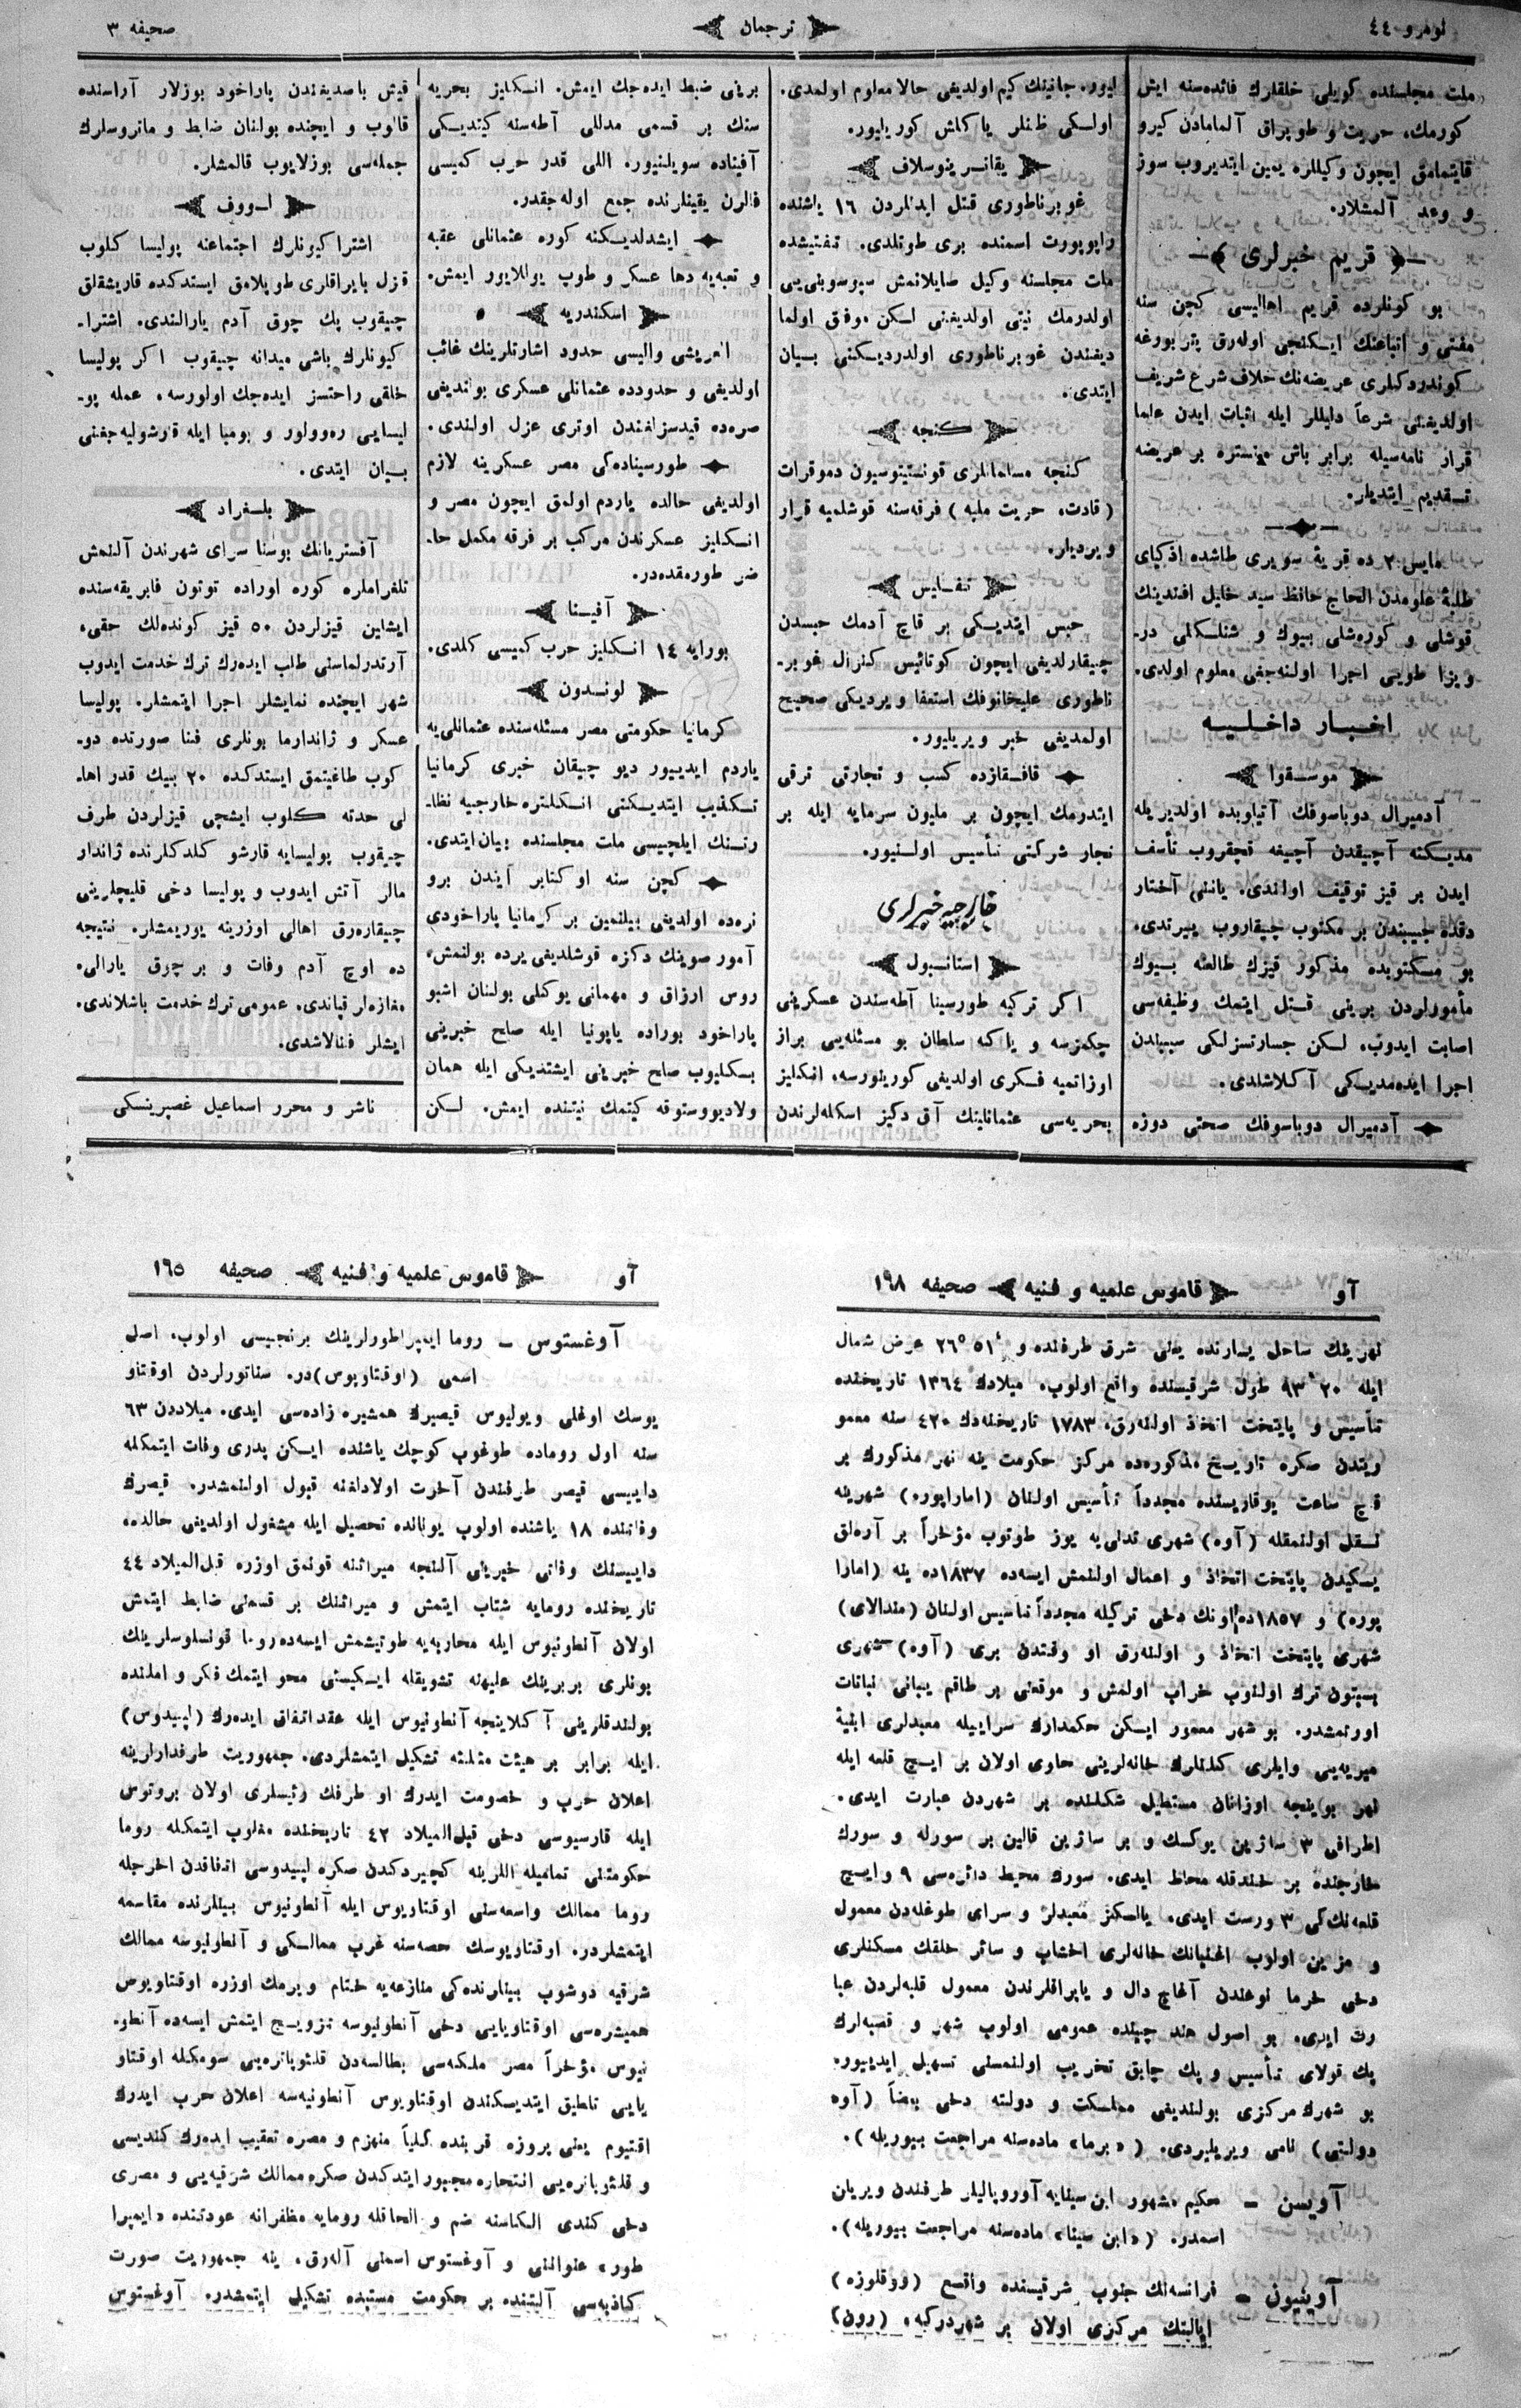 نومرو ٤٤
ترجمان
صحيفه ٣
ملت مجلسنده كويلى خلقلرك فائده‌سنه ايش
كورمك، حريت و طوپراق آلمامادن كيرو
قايتمامق ايچون وكيللره يمين ايتديروب سوز
و وعد آلمشلار.
قريم خبرلرى
بو كونلرده قريم اهاليسى كچن سنه
مفتى و اتباعنك ايكنجى اوله‌رق پتربورغه
كوندردكلرى عريضه‌نك خلاف شرع شريف
اولديغنى شرعاً دليللر ايله اثبات ايدن علما
قرار نامه‌سيله برابر باش منستره بر عريضه
تقديم ايتديلر.
مايس ٢ ده قريۀ سويرى طاشده اذكياى
طلبۀ علومدن الحاج حافظ سيد خليل افندينك
قوشلى و كوره‌شلى بيوك و شنلكلى در-
ويزا طويى اجرا اولنه‌جغى معلوم اولدى.
اخبار داخليه
موسقوا
آدميرال دوباسوفك آتياوبده اولديريله
مديكنه آچيقدن آچيغه قچقروب تأسف
ايدن بر قيز توقيف اولندى. يانى آختار
دقده جيبندن بر مكتوب چيقاروب ييرتدى.
بو مكتوبده مذكور قيزك طالعنه بيوك
مأمورلردن برينى قتل ايتمك وظيفه‌سى
اصابت ايدوب، لكن جسارتسزلكى سببندن
اجرا ايده‌مديكى آكلاشلدى.
آدميرال دوباسوفك صحتى دوزه
ليور. جانينك كيم اولديغى حالا معلوم اولمدى.
اولكى ظنلر ياكلش كوريليور.
يقاترينوسلاف
غوبرناطورى قتل ايدنلردن ١٦ ياشنده
راپوپورت اسمنده برى طوتلدى. تفتيشده
ملت مجلسنه وكيل صايلانمش سپوسوبنى‌يى
اولدرمك نيتى اولديغنى لكن موفق اولما
ديغندن غوبرناطورى اولدرديكنى بيان
ايتدى.
كنجه
كنجه مسلمانلرى قونستيتوسيون دموقرات
(قادت، حريت مليه) فرقه‌سنه قوشلميه قرار
ويرديلر.
تفليس
حبس ايتديكى بر قاچ آدمك حبسدن
چيقارلديغى ايچون كوتائيس كنرال غوبر-
ناطورى عليخانوفك استعفا ويرديكى صحيح
اولمديغى خبر ويريليور.
قافقازده كسب و تجارتى ترقى
ايتدرمك ايچون بر مليون سرمايه ايله بر
تجار شركتى تأسيس اولنيور.
خارجيه خبرلرى
استانبول
اكر تركيه طورسينا آطه‌سندن عسكرينى
چكمزسه و ياكه سلطان بو مسئله‌يى براز
اوزاتميه فكرى اولديغى كورينورسه، انكليز
بحريه‌سى عثمانلينك آق دكيز اسكله‌لرندن
برينى ضبط ايده‌جك ايمش. انكليز بحريه
سنك بر قسمى مدللى آطه‌سنه كيتديكى
آفيناده سويلنيور. اللى قدر حرب كميسى
فالرن يقينلرنده جمع اوله‌جقدر.
ايشدلديكنه كوره عثمانلى عقبه
و تعبه‌يه دها عسكر و طوپ يوللايور ايمش.
اسكندريه
العريشى واليسى حدود اشارتلرينك غائب
اولديغى و حدودده عثمانلى عسكرى بولنديغى
صره‌ده قيدسزلغندن اوترى عزل اولندى.
طورسيناده‌كى مصر عسكرينه لازم
اولديغى حالده ياردم اولمق ايچون مصر و
انكليز عسكرندن مركب بر فرقه مكمل حا-
ضر طورمقده‌در.
آفينا
بورايه ١٤ انكليز حرب كميسى كلدى.
لوندون
كرمانيا حكومتى مصر مسئله‌سنده عثمانلى‌يه
ياردم ايدييور ديو چيقان خبرى كرمانيا
تكذيب ايتديكنى انكلتره خارجيه نظا-
رتنك ايلچيسى ملت مجلسنده بيان ايتدى.
كچن سنه اوكتابر آيندن برو
نره‌ده اولديغى بيلنمين بر كرمانيا پاراخودى
آمور صوينك دكزه قوشلديغى يرده بولنمش،
روس ارزاق و مهمانى يوكلى بولنان اشبو
پاراخود بوراده ياپونيا ايله صلح خبرينى
بكليوب صلح خبرينى ايشتديكى ايله همان
ولاديووستوقه كيتمك نيتنده ايمش. لكن
قيش باصديغندن پاراخود بوزلار آراسنده
قالوب و ايچنده بولنان ضابط و ماتروسلرك
جمله‌سى بوزلايوب قالمشلر.
لووف
اشتراكيونلرك اجتماعنه پوليسا كلوب
قزل بايراقلرى طوپلامق ايستدكده قاريشقلق
چيقوب پك چوق آدم يارالندى. اشترا-
كيونلرك باشى ميدانه چيقوب اكر پوليسا
خلقى راحتسز ايده‌جك اولورسه، عمله پو-
ليسايى ره‌وولور و بومبا ايله قارشوليه‌جغنى
بيان ايتدى.
بلغراد
آفستريانك بوسنا سراى شهرندن آلنمش
تلغراملره كوره اوراده توتون فابريقه‌سنده
ايشلين قيزلردن ٥٠ قيز كونده‌لك حقى،
آرتدرلماسنى طلب ايده‌رك ترك خدمت ايدوب
شهر ايچنده نمايشلر اجرا ايتمشلر. پوليسا
عسكر و ژاندارما بونلرى فنا صورتده دو-
كوب طاغيتمق ايستدكده ٢٠ بيك قدر اها-
لى حدته كلوب ايشجى قيزلردن طرف
چيقوب پوليسايه قارشو كلدكلرنده ژاندار
مالر آتش ايدوب و پوليسا دخى قليچلرينى
چيقاره‌رق اهالى اوزرينه يوريمشلر. نتيجه
ده اوچ آدم وفات و بر چوق يارالى.
مغازه‌لر قپاندى. عمومى ترك خدمت باشلاندى.
ايشلر فنالاشدى.
ناشر و محرر اسماعيل غصپرينسكى
آو
قاموس علميه و فنيه
صحيفه ١٩٨
نهرينك ساحل يسارنده يعنى شرق طرفنده و ٥١ ٢٦ عرض شمال
ايله ٢٠ ٩٣ طول شرقيسنده واقع اولوب، ميلادك ١٣٦٤ تاريخنده
تأسيس و پايتخت اتخاذ اولنه‌رق، ١٧٨٣ تاريخنه‌دك ٤٢٠ سنه معمو
ريتدن صكره تاريخ مذكورده مركز حكومت ينه نهر مذكورك بر
قچ ساعت يوقاريسنده مجدداً تأسيس اولنان (اماراپوره) شهرينه
نقل اولنمقله (آوه) شهرى تدلى‌يه يوز طوتوب مؤخراً بر آره‌لق
يكيدن پايتخت اتخاذ و اعمال اولنمش ايسه‌ده ١٨٣٧ده ينه (امارا
پوره) و ١٨٥٧ده اونك دخى تركيله مجدداً تأسيس اولنان (مندالاى)
شهرى پايتخت اتخاذ و اولنه‌رق او وقتدن برى (آوه) شهرى
بسبتون ترك اولنوب خراب اولمش و موقعنى بر طاقم يبانى نباتات
اورتمشدر. بو شهر معمور ايكن حكمدارك سراييله معبدلرى ابنيۀ
ميريه‌يى وايلرى كلنلرك خانه‌لرينى حاوى اولان بر ايچ قلعه ايله
نهر بوينجه اوزانان مستطيل شكلنده بر شهردن عبارت ايدى.
اطرافى ٣ ساژين يوكسك و بر ساژين قالين بر سورله و سورك
خارجنده بر خندقله محاط ايدى. سورك محيط دائره‌سى ٩ وايچ
قلعه‌نك‌كى ٣ ورست ايدى. يالكز معبدلر و سراى طوغله‌دن معمول
و مزين اولوب اغنيانك خانه‌لرى اخشاب و سائر خلقك مسكنلرى
دخى خرما نوعندن آغاچ دال و ياپراقلرندن معمول قلبه‌لردن عبا
رت ايدى. بو اصول هند چينده عمومى اولوب شهر و قصبه‌لرك
پك قولاى تأسيس و پك چابق تخريب اولنمسنى تسهيل ايدييور.
بو شهرك مركزى بولنديغى مملكت و دولته دخى بعضاً (آوه
دولتى) نامى ويريليردى. («برما» ماده‌سنه مراجعت بيوريله).
آويسن – حكيم مشهور ابن سينايه آوروپاليلر طرفندن ويريلن
اسمدر. («ابن سينا» ماده‌سنه مراجعت بيوريله).
آوينيون – فرانسه‌نك جنوب شرقيسنده واقع (ووقلوزه)
ايالتنك مركزى اولان بر شهردركه، (رون)
آو
قاموس علميه و فنيه
صحيفه ١٩٥
آوغستوس – روما ايمپراطورلرينك برنجيسى اولوب، اصل
اسمى (اوقتاويوس)در. سناتورلردن اوقتاو
يوسك اوغلى ويوليوس قيصرك همشيره زاده‌سى ايدى. ميلاددن ٦٣
سنه اول روماده طوغوب كوچك ياشنده ايكن پدرى وفات ايتمكله
داييسى قيصر طرفندن آخرت اولادلغنه قبول اولنمشدر. قيصرك
وفاتنده ١٨ ياشنده اولوب يونانده تحصيل ايله مشغول اولديغى حالده،
داييسنك وفاتى خبرينى آلنجه ميراثنه قونمق اوزره قبل‌الميلاد ٤٤
تاريخنده رومايه شتاب ايتمش و ميراثنك بر قسمنى ضابط ايتمش
اولان آنطونيوس ايله محاربه‌يه طوتيشمش ايسه‌ده روما قونسلوسلرينك
بونلرى بربرينك عليهنه تشويقله ايكيسنى محو ايتمك فكر و املنده
بولندقلرينى آكلاينجه آنطونيوس ايله عقد اتفاق ايده‌رك (لپيدوس)
ايله برابر بر هيئت مثلثه تشكيل ايتمشلردى. جمهوريت طرفدارلرينه
اعلان حرب و خصومت ايدرك او طرفك رئيسلرى اولان بروتوس
ايله قارسيوسى دخى قبل‌الميلاد ٤٢ تاريخنده مغلوب ايتمكله روما
حكومتنى تماميله اللرينه كچيردكدن صكره لپيدوسى اتفاقدن اخرجله
روما ممالك واسعه‌سنى اوقتاويوس ايله آنطونيوس بينلرنده مقاسمه
ايتمشلردر. اوقتاويوسك حصه‌سنه غرب ممالكى و آنطونيوسه ممالك
شرقيه دوشوب بينلرنده‌كى منازعه‌يه ختام ويرمك اوزره اوقتاويوس
همشيره‌سى اوقتاويايى دخى آنطونيوسه تزويج ايتمش ايسه‌ده آنطو-
نيوس مؤخراً مصر ملكه‌سى بطالسه‌دن قلئوپاتره‌يى سومكله اوقتاو
يايى تطليق ايتديكندن اوقتاويوس آنطونيه‌سه اعلان حرب ايدرك
اقتيوم يعنى پروزه قربنده كلياً منهزم و مصره تعقيب ايده‌رك كنديسى
و قلئوپاتره‌يى انتحاره مجبور ايتدكدن صكره ممالك شرقيه‌يى و مصرى
دخى كندى الكاسنه ضم و الحاقله رومايه مظفرانه عودتنده «ايمپرا
طور» عنواننى و آوغستوس اسمنى آله‌رق، ينه جمهوريت صورت
كاذبه‌سى آلتنده بر حكومت مستبده تشكيل ايتمشدر. آوغستوس